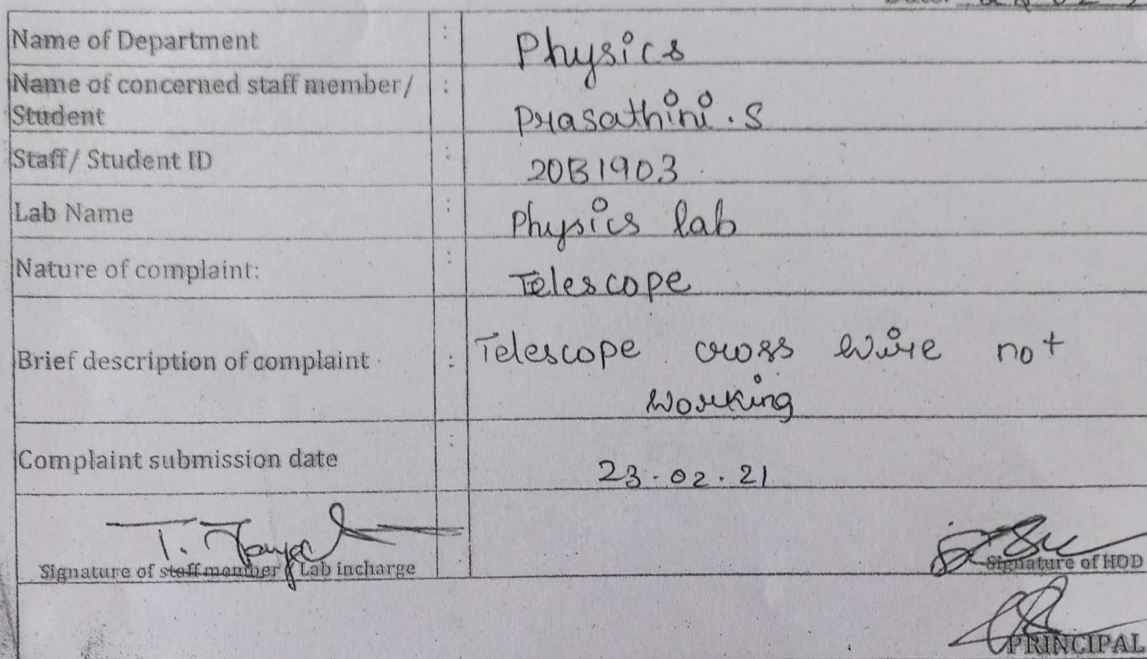 Name of Department : Physics
Name of concerned staff member/ : Prasathini.S
Student
Staff/ Student ID : 20B1903
Lab Name : Physics lab
Nature of complaint: : Telescope
Brief description of complaint : Telescope cross wire not
working
Complaint submission date : 23.02.21
Signature of staff member / Lab incharge
Signature of HOD
PRINCIPAL